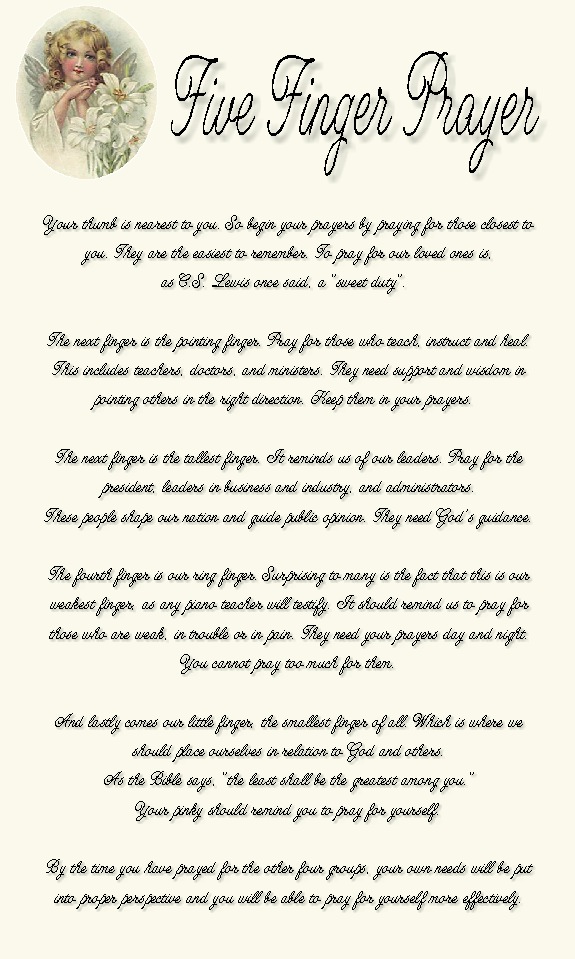 Five Finger Prayer
Your thumb is nearest to you. So begin your prayers by praying for those closest to
you. They are the easiest to remember. To pray for our loved ones is,
as C.S. Lewis once said, a "sweet duty".
The next finger is the pointing finger. Pray for those who teach, instruct and heal.
This includes teachers, doctors, and ministers. They need support and wisdom in
pointing others in the right direction. Keep them in your prayers.
The next finger is the tallest finger. It reminds us of our leaders. Pray for the
president, leaders in business and industry, and administrators.
These people shape our nation and guide public opinion. They need God's guidance.
The fourth finger is our ring finger. Surprising to many is the fact that this is our
weakest finger, as any piano teacher will testify. It should remind us to pray for
those who are weak, in trouble or in pain. They need your prayers day and night.
You cannot pray too much for them.
And lastly comes our little finger, the smallest finger of all. Which is where we
should place ourselves in relation to God and others.
As the Bible says, "the least shall be the greatest among you."
Your pinky should remind you to pray for yourself.
By the time you have prayed for the other four groups, your own needs will be put
into proper perspective and you will be able to pray for yourself more effectively.